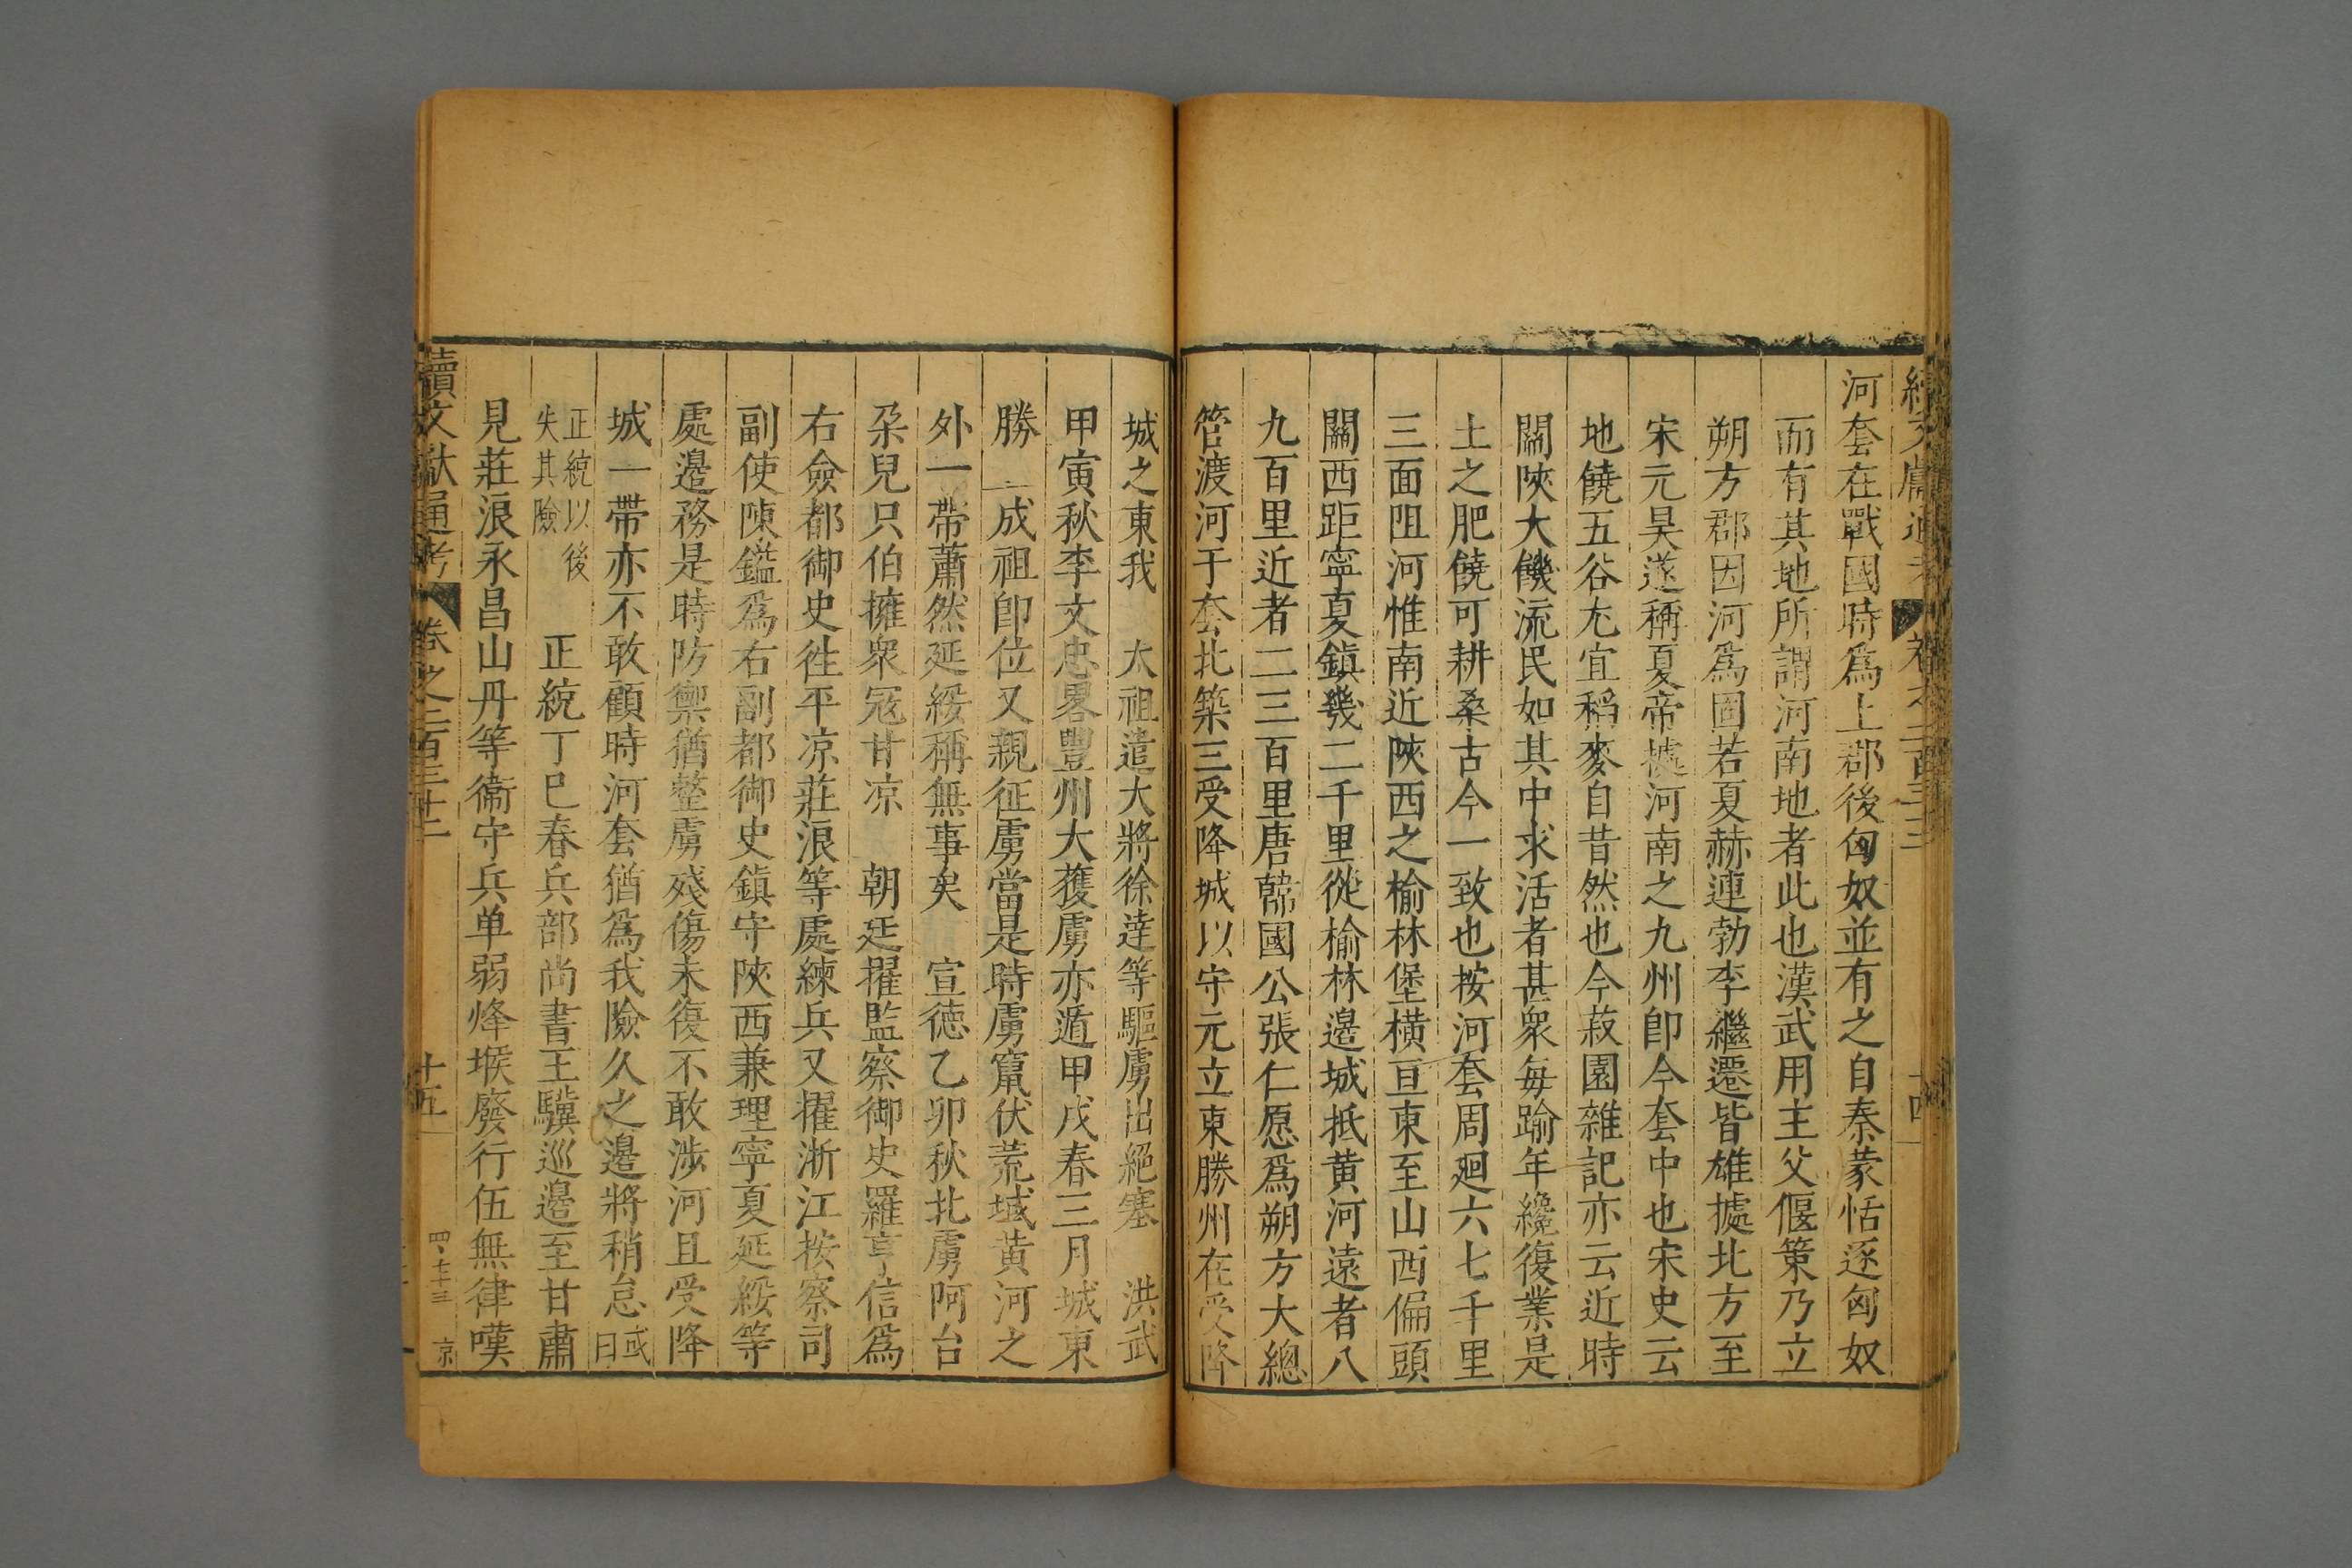 河套在戰國時爲上郡後匈奴並有之自秦蒙恬逐匈奴
而有其地所謂河南地者此也漢武用主父偃策乃立
朔方郡因河爲固若夏赫連勃李繼遷皆雄據北方至
宋元昊遂稱夏帝據河南之九州即今套中也宋史云
地饒五谷尤宜稻麥自昔然也今菽園雜記亦云近時
關陝大饑流民如其中求活者甚衆毎踰年纔復業是
土之肥饒可耕桑古今一致也按河套周廻六七千里
三面阻河惟南近陝西之榆林堡横亘東至山西偏頭
關西距寧夏鎮幾二千里從榆林邊城抵黄河遠者八
九百里近者二三百里唐韓國公張仁愿爲朔方大總
管渡河于套北築三受降城以守元立東勝州在受降
城之東我 太祖遣大將徐逹等驅虜出絕塞 洪武
甲寅秋李文忠畧豐州大獲虜亦遁甲戌春三月城東
勝 成祖即位又親征虜當是時虜竄伏荒域黄河之
外一帶蕭然延綏稱無事矣 宣德乙卯秋北虜阿台
朶兒只伯擁衆寇甘凉 朝廷擢監察御史羅亨信爲
右僉都御史徃平凉莊浪等處練兵又擢浙江按察司
副使陳鎰爲右副都御史鎮守陝西兼理寧夏延綏等
處邊務是時防禦猶整虜殘傷未復不敢渉河且受降
城一帶亦不敢顧時河套猶爲我險久之邊將稍怠或曰
正統以後失其險 正統丁巳春兵部尚書王驥巡邊至甘肅
見莊浪永昌山丹等衞守兵单弱烽堠廢行伍無律嘆
續文獻通考 卷之二百三十三 十五 四、七十三 京